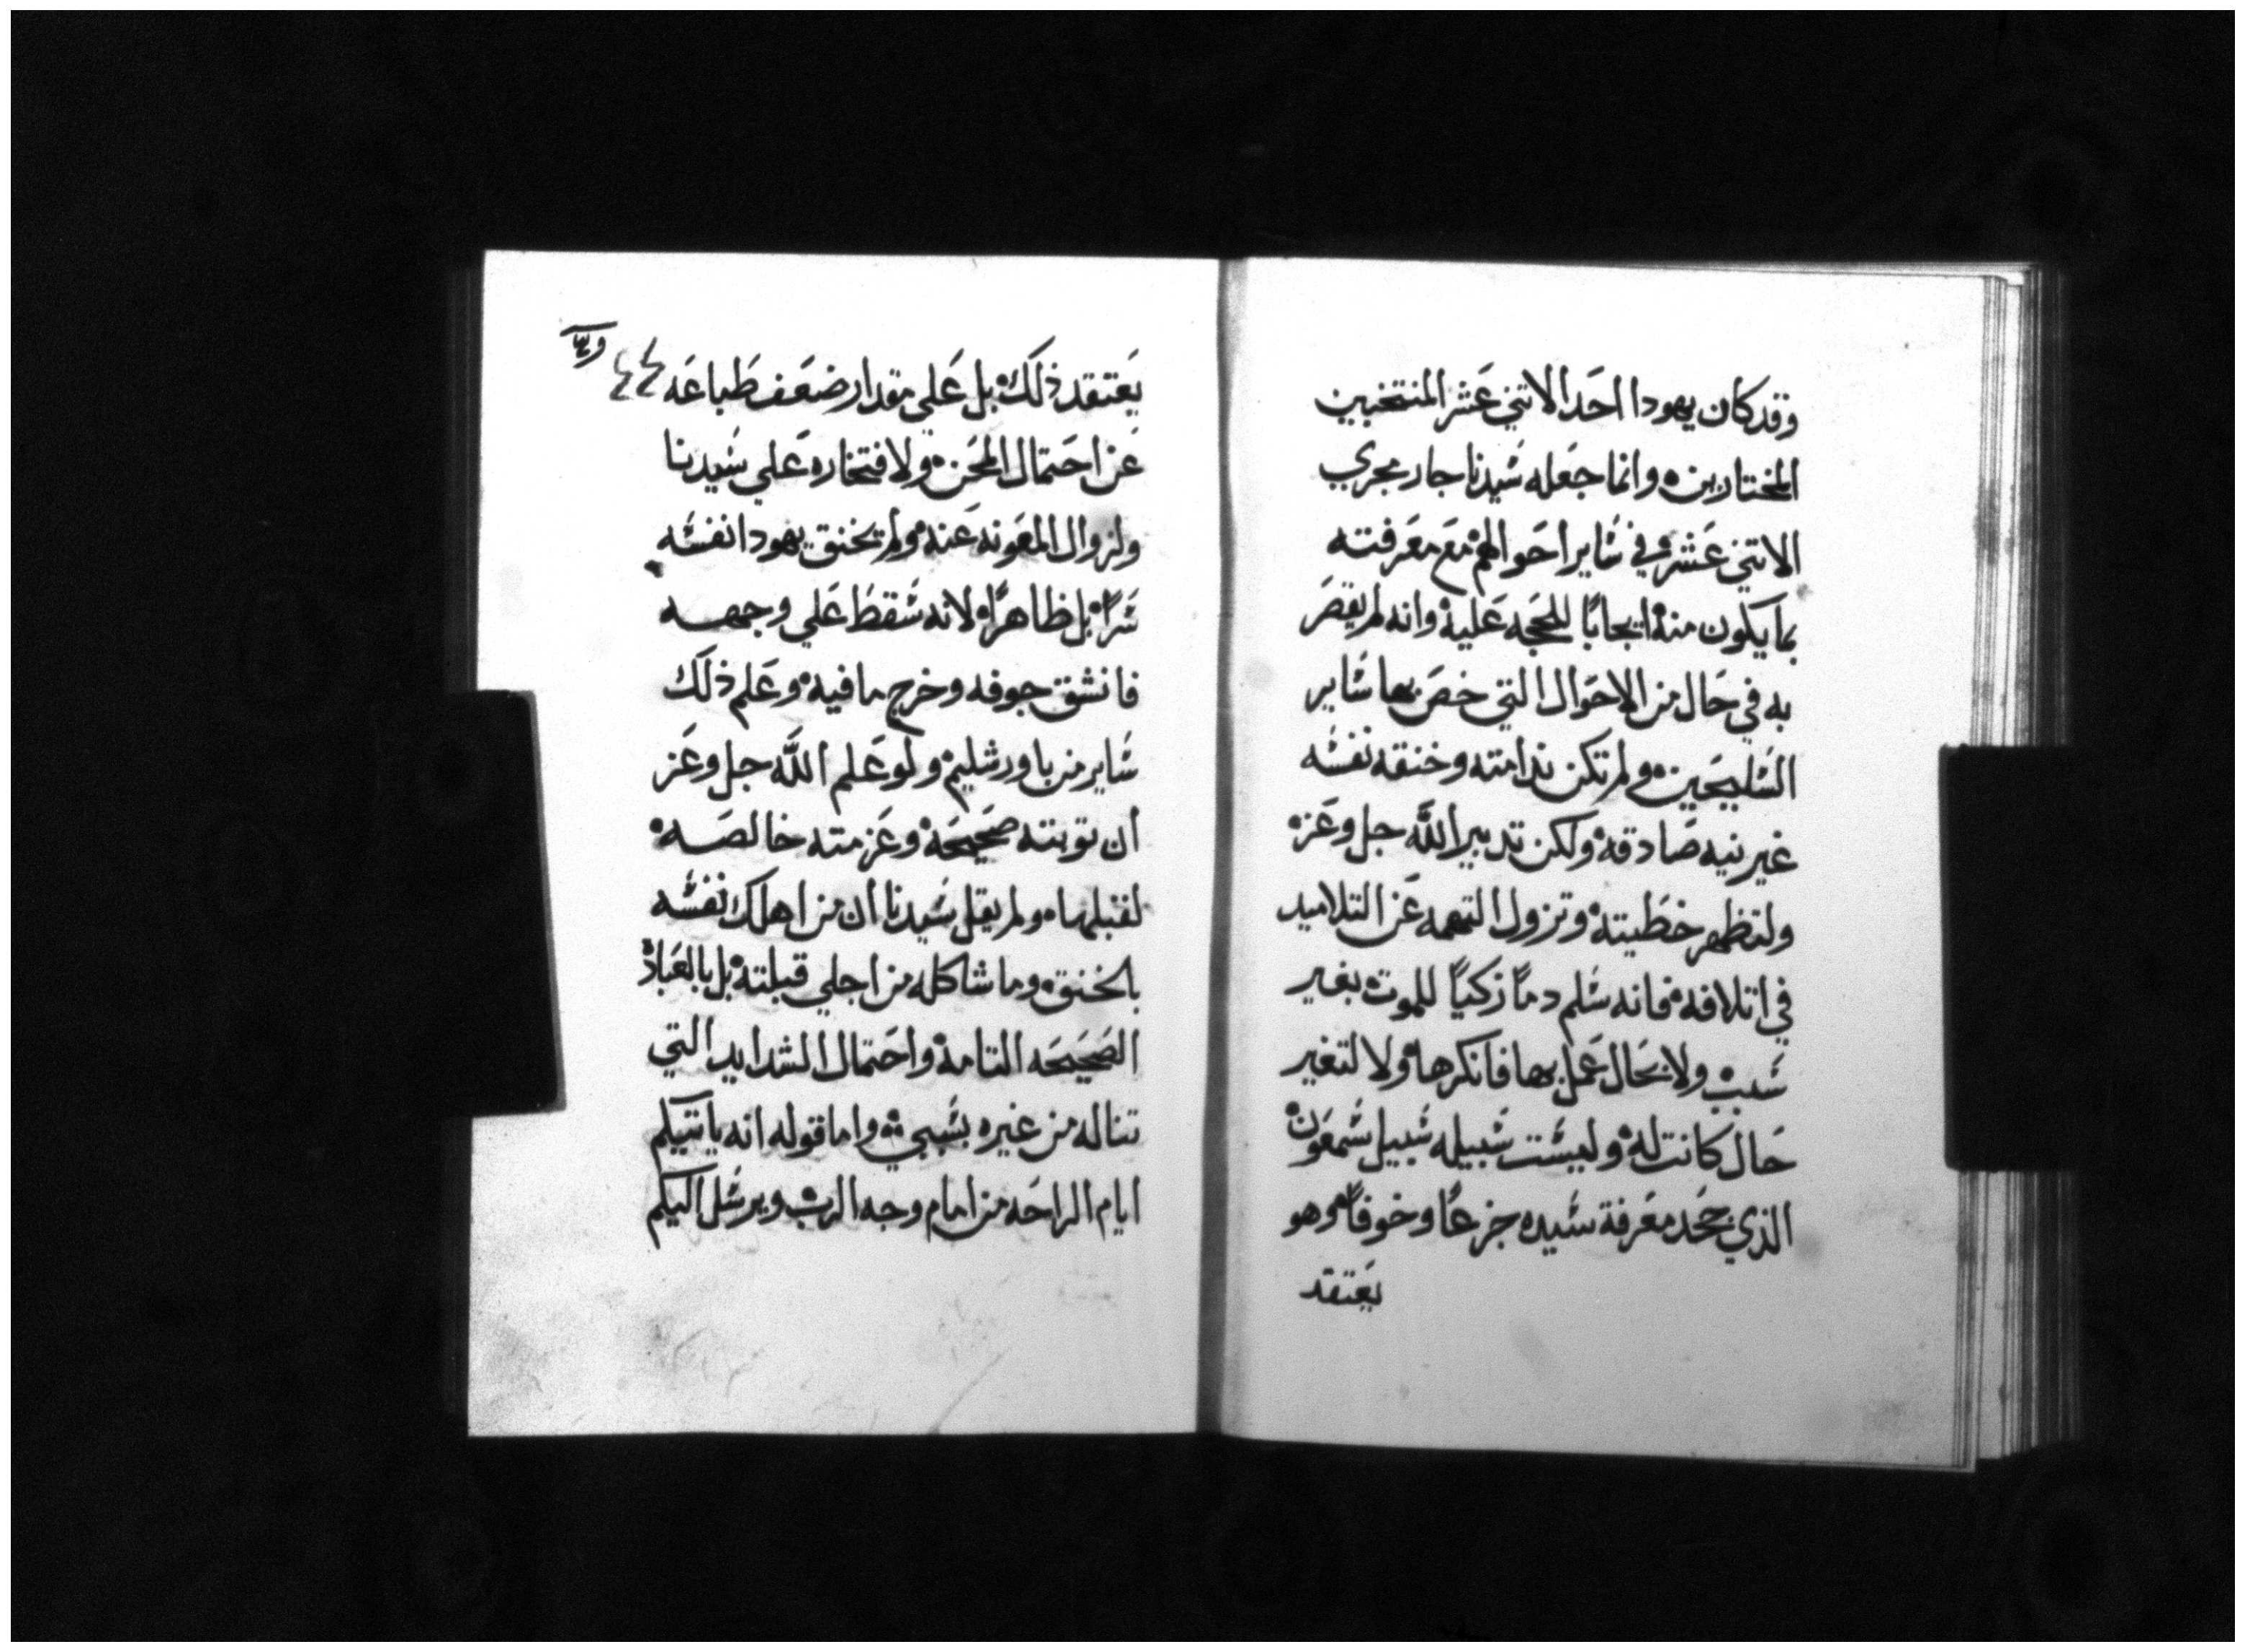 وقد كان يهودا احد الاتني عشر المنتخبين
المختارين٥ وانما جعله شيدنا جار مجري
الاتني عشرْ في شاير احوالهمْ مع معرفته
بما يكون منهْ ايجابًا للحجه عليهْ وانه لم يقصر
به في حال من الاحوال التي خص بها شاير
الشليحين٥ ولم تكن ندامته وخنقه نفشه
غير نيه صادقهْ ولكن تدبير الله جل وعز٥
ولتظهر خطيتهْ وتزول التهمه عن التلاميد
في اتلافهْ فانه شلم دماً زكياً للموتْ بغير
شببْ ولا بحال عمل بها فانكرهاْ ولا لتغير
حال كانت لهْ وليشت شبيله شبيل شمعونْ
الذي جحد معرفة شيده جزعًا وخوفاًْ وهو
يعتقد
٤٤
يعتقد ذلكْ بل علي مقدار ضعف طباعه
عن احتمال المحن٥ ولافتخاره علي شيدنا
ولزوال المعونه عنهْ ولم يخنق يهودا نفشه
شراًْ بل ظاهراًْ لانه شقط علي وجهه
فانشق جوفه وخرج ما فيهْ وعلم ذلك
شاير من باورشليمْ ولو علم الله جل وعز
ان توبته صحيحهْ وعزمته خالصه٥
لقبلها٥ ولم يقل شيدنا ان من اهلك نفشه
بالخنق٥ وما شاكله من اجلي قبلتهْ بل بالعبادْ
الصحيحه التامهْ واحتمال الشدايد التي
تناله من غيره بشببي٥ واما قوله انه ياتيكم
ايام الراحه من امام وجه الربْ ويرشل اليكم